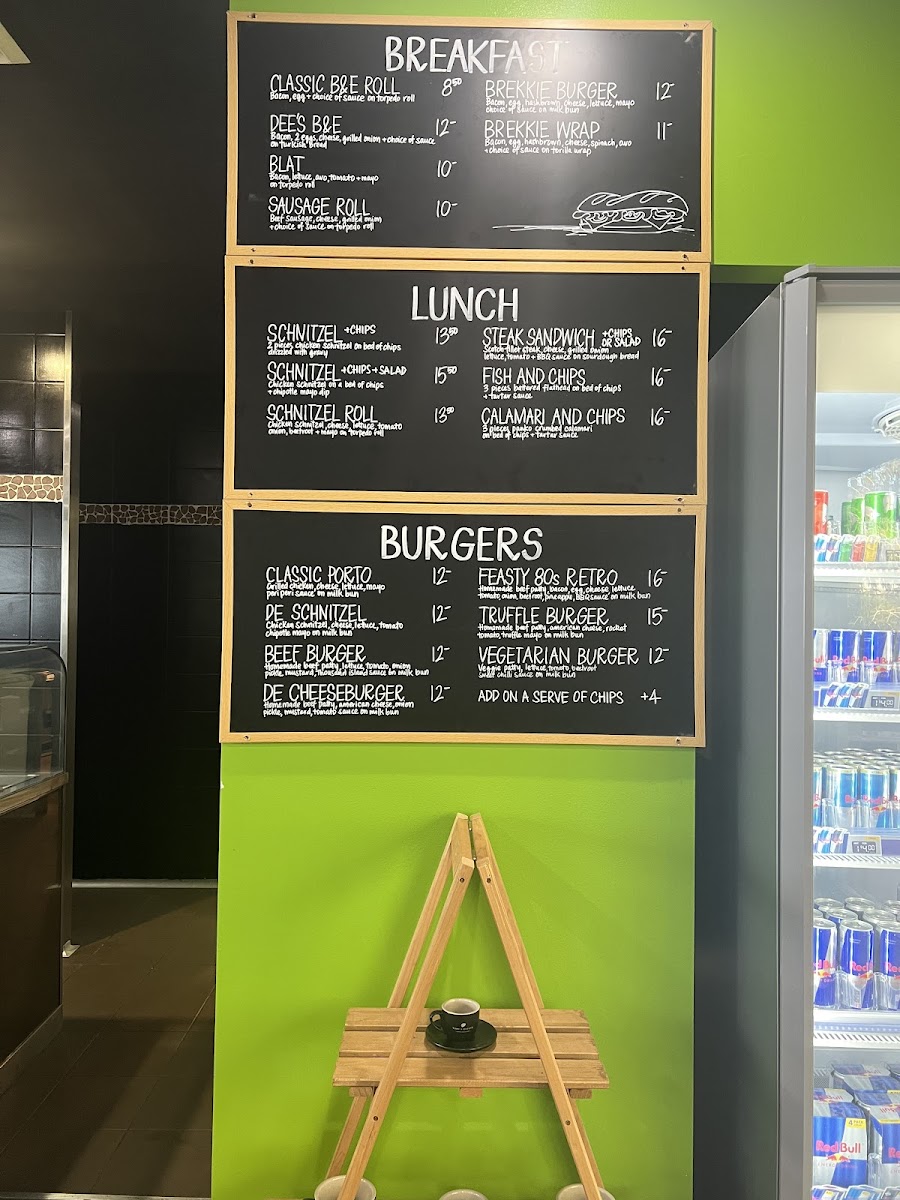 BREAKFAST
CLASSIC B&E ROLL 8⁵⁰
Bacon, egg + choice of sauce on torpedo roll
DEE'S B&E 12-
Bacon, 2 eggs, cheese, grilled onion + choice of sauce
on turkish bread
BLAT 10-
Bacon, lettuce, avo, tomato + mayo
on torpedo roll
SAUSAGE ROLL 10-
Beef Sausage, cheese, grilled onion
+ choice of sauce on torpedo roll
BREKKIE BURGER 12-
Bacon, egg, hashbrown, cheese, lettuce, mayo
choice of sauce on milk bun
BREKKIE WRAP 11-
Bacon, egg, hashbrown, cheese, spinach, avo
+ choice of sauce on torilla wrap
LUNCH
SCHNITZEL +CHIPS 13⁵⁰
2 pieces chicken schnitzel on bed of chips
drizzled with gravy
SCHNITZEL +CHIPS + SALAD 15⁵⁰
Chicken schnitzel on a bed of chips
+ chipotle mayo dip
SCHNITZEL ROLL 13⁵⁰
Chicken schnitzel, cheese, lettuce, tomato
onion, beetroot + mayo on torpedo roll
STEAK SANDWICH +CHIPS OR SALAD 16-
Scotch fillet steak, cheese, grilled onion
lettuce, tomato + BBQ sauce on sourdough bread
FISH AND CHIPS 16-
3 pieces battered flathead on bed of chips
+ tartar sauce
CALAMARI AND CHIPS 16-
5 pieces panko crumbed calamari
on bed of chips + tartar sauce
BURGERS
CLASSIC PORTO 12-
Grilled chicken, cheese, lettuce, mayo
peri peri sauce on milk bun
DE SCHNITZEL 12-
Chicken schnitzel, cheese, lettuce, tomato
chipotle mayo on milk bun
BEEF BURGER 12-
Homemade beef patty, lettuce, tomato, onion
pickle, mustard, thousand island sauce on milk bun
DE CHEESEBURGER 12-
Homemade beef patty, american cheese, onion
pickle, mustard, tomato sauce on milk bun
FEASTY 80s RETRO 16-
Homemade beef patty, bacon, egg, cheese, lettuce
tomato, onion, beetroot, pineapple, BBQ sauce on milk bun
TRUFFLE BURGER 15-
Homemade beef patty, american cheese, rocket
tomato, truffle mayo on milk bun
VEGETARIAN BURGER 12-
Veggie patty, lettuce, tomato, beetroot
sweet chilli sauce on milk bun
ADD ON A SERVE OF CHIPS +4-
Red Bull